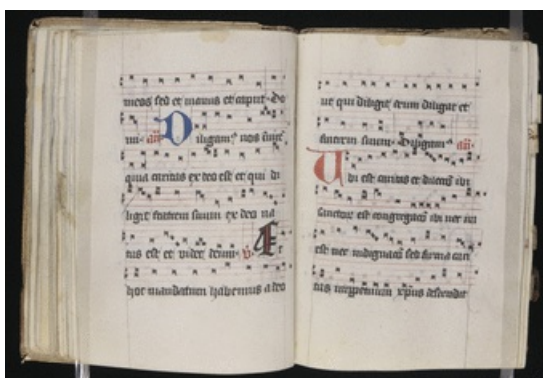 meos sed et manus et caput Do
mi añ Diligam⁹ nos inuicē
quia caritas ex deo est et qui di
ligit fratrem suum ex deo na
tus est et videt deum v Et
hoc mandatum habemus a deo
ut qui diligit deum diligat et
fratrem suum Diligam⁹ añ
Ubi est caritas et dilectio ibi
sanctorum est congregatio ibi nec ira
est nec indignatio sed firma cari
tas in perpetuum xpus descendit